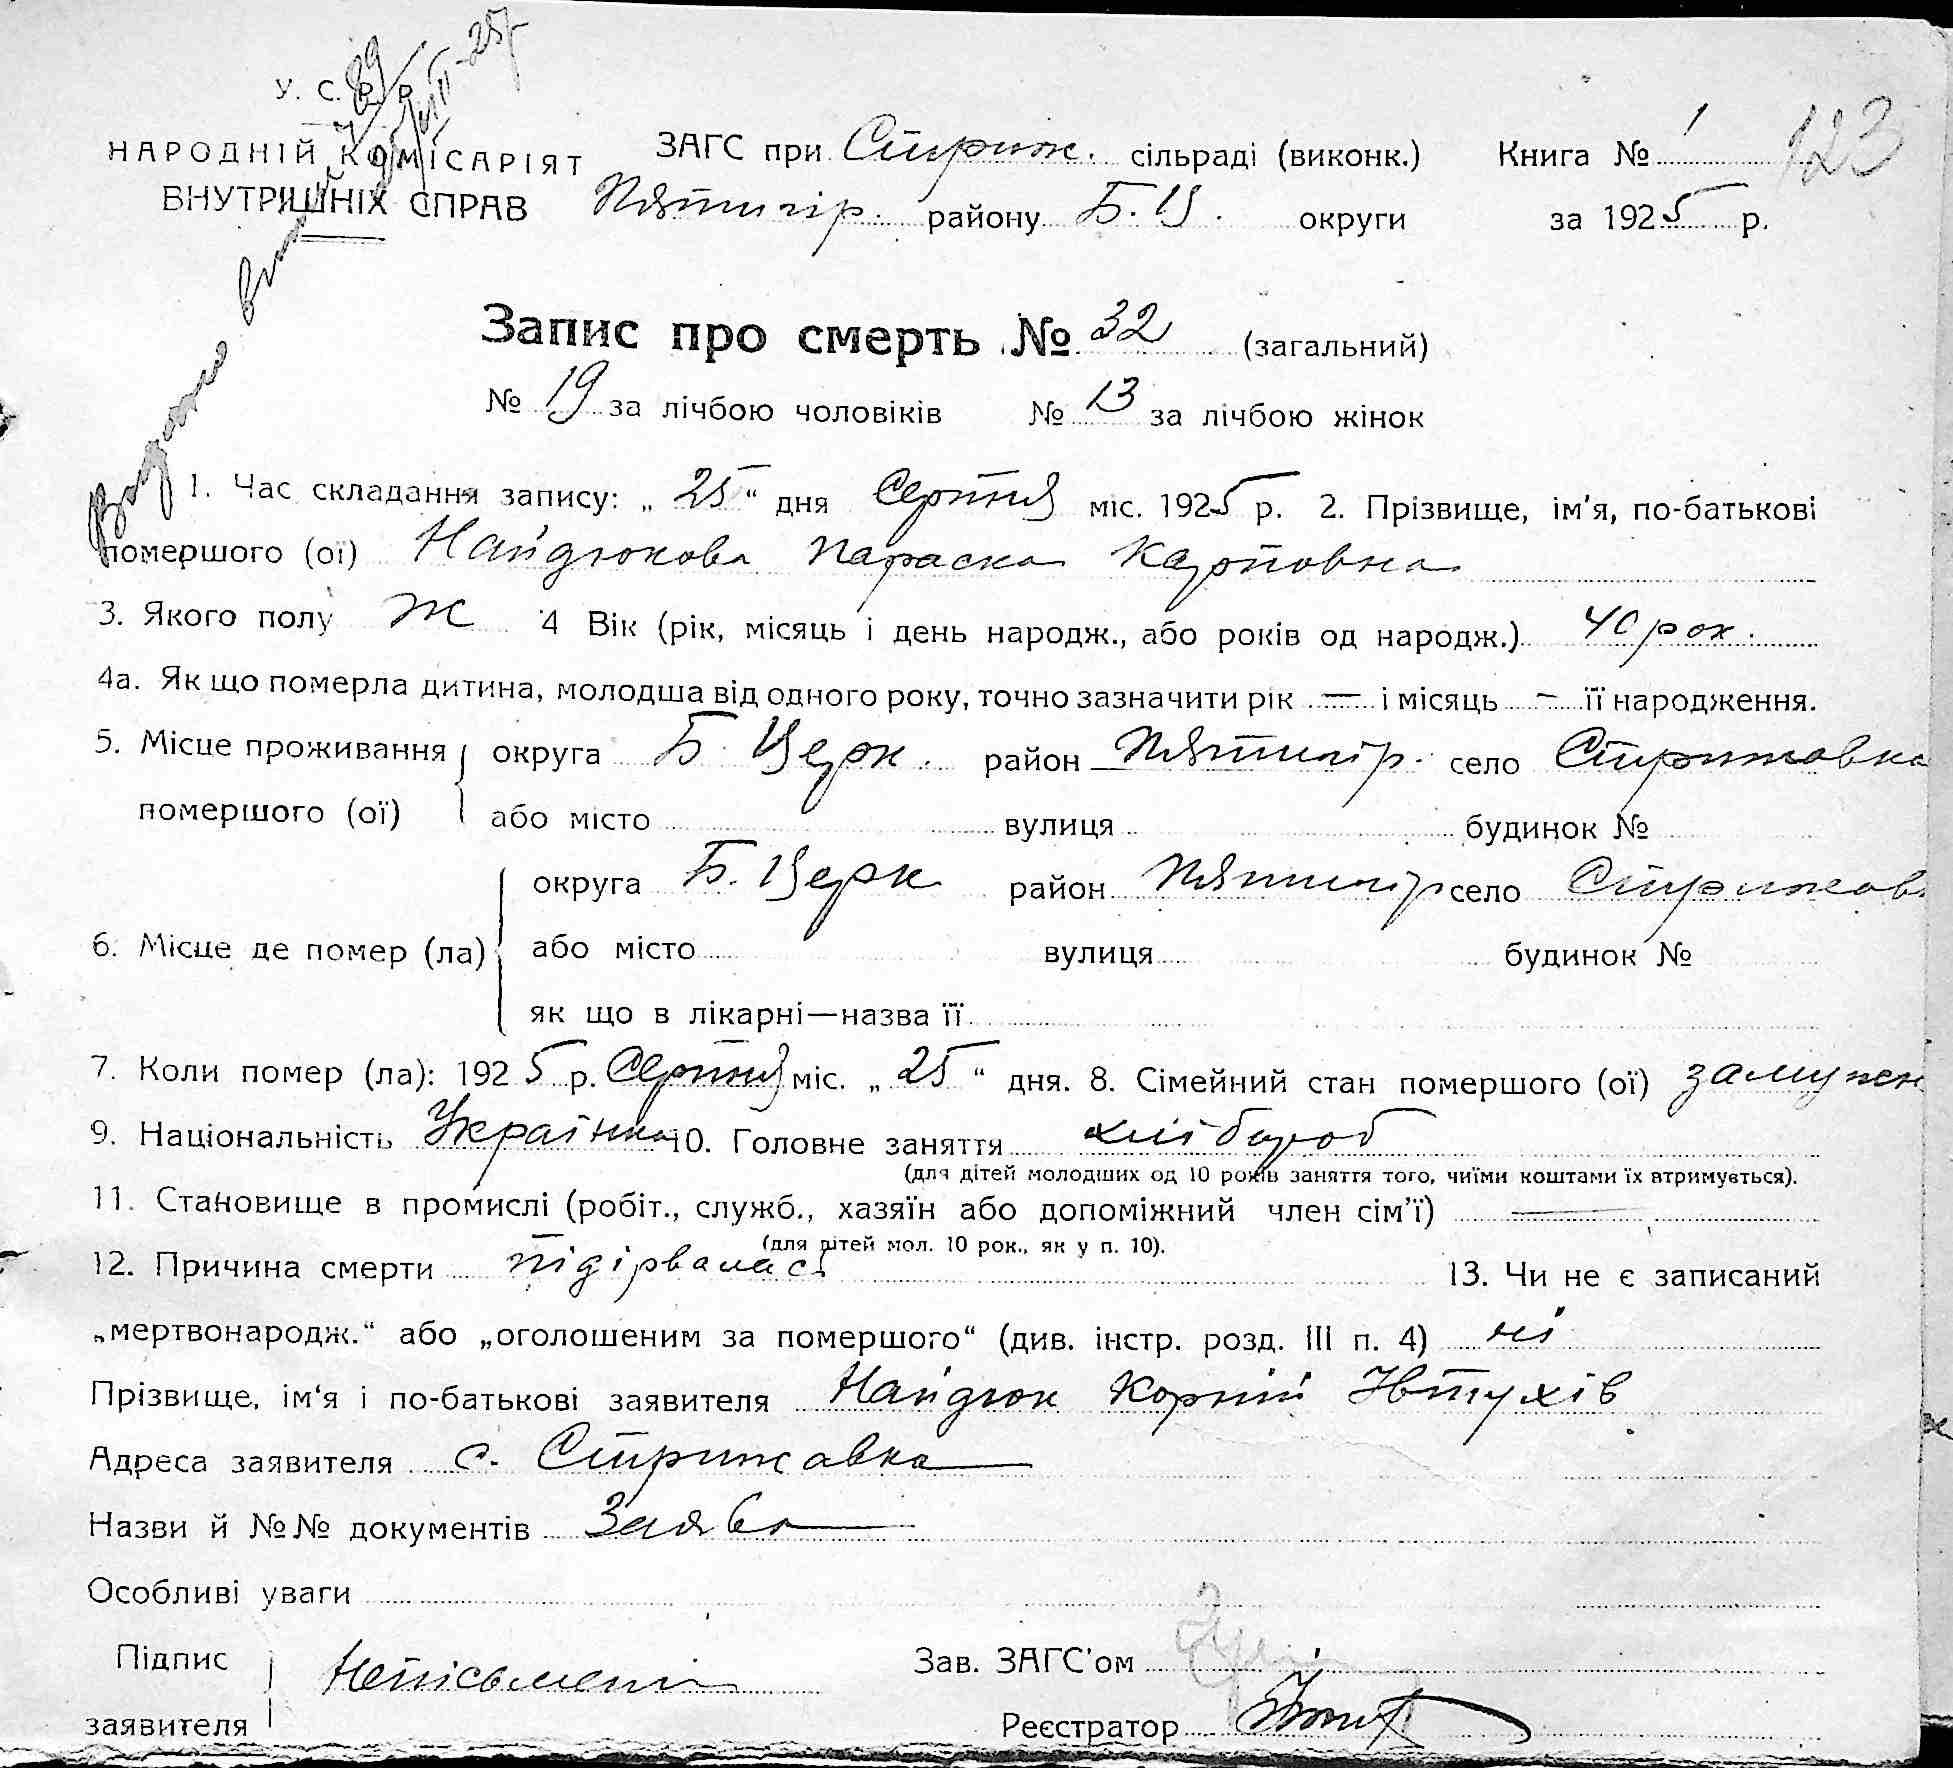 У. С. Р. Р.
НАРОДНІЙ КОМІСАРІЯТ
ВНУТРІШНІХ СПРАВ
Видано
ЗАГС при Стриж. сільраді (виконк.) Книга № 1 123
Пятигір. району Б. Ц. округи за 1925 р.
Запис про смерть № 32 (загальний)
№ 19 за лічбою чоловіків № 13 за лічбою жінок
1. Час складання запису: „ 25 “ дня Серпня міс. 1925 р. 2. Прізвище, ім'я, по-батькові
помершого (ої) Найдюкова Параска Карповна
3. Якого полу Ж 4 Вік (рік, місяць і день народж., або років од народж.) 40 рок.
4а. Як що померла дитина, молодша від одного року, точно зазначити рік — і місяць — її народження.
5. Місце проживання помершого (ої) округа Б. Церк. район Пятигір. село Стрижавка
або місто вулиця будинок №
6. Місце де помер (ла) округа Б. Церк район Пятигір село Стрижав
або місто вулиця будинок №
як що в лікарні—назва її
7. Коли помер (ла): 1925 р. Серпня міс. „ 25 “ дня. 8. Сімейний стан помершого (ої) замужн
9. Національність Українка 10. Головне заняття хлібороб
(для дітей молодших од 10 років заняття того, чиїми коштами їх втримується).
11. Становище в промислі (робіт., служб., хазяїн або допоміжний член сім'ї) —
(для дітей мол. 10 рок., як у п. 10).
12. Причина смерти підірвалась 13. Чи не є записаний
„мертвонародж.“ або „оголошеним за помершого“ (див. інстр. розд. III п. 4) ні
Прізвище, ім'я і по-батькові заявителя Найдюк Корній Ювтухів
Адреса заявителя с. Стрижавка
Назви й №№ документів Заява
Особливі уваги
Підпис заявителя Неписьмені Зав. ЗАГС'ом
Реєстратор